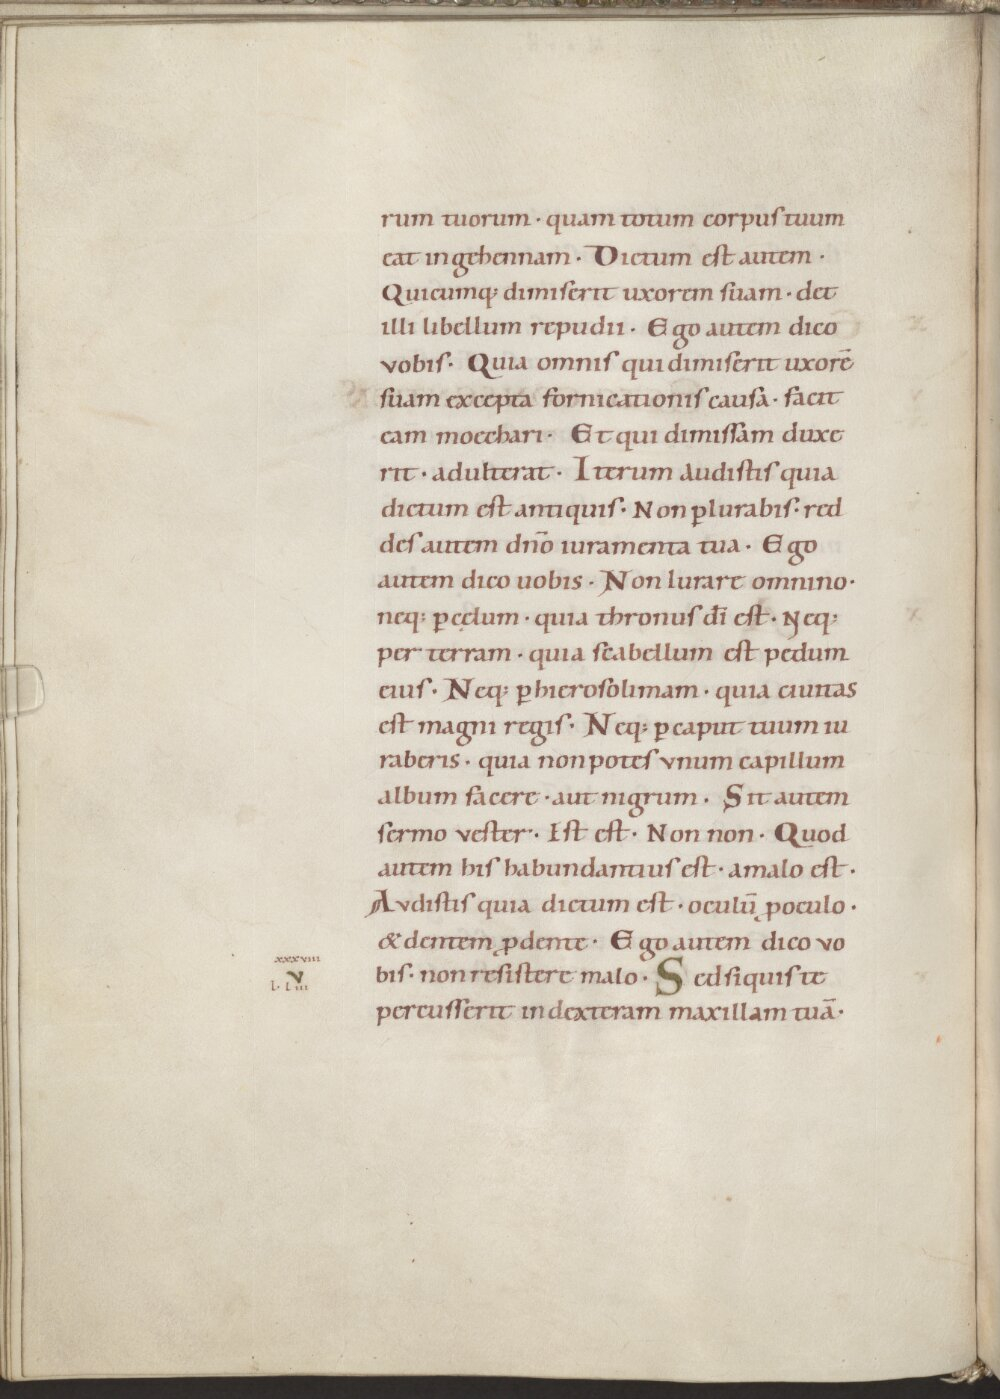 rum tuorum · quam totum corpus tuum
eat in gehennam · Dictum est autem ·
Quicumq; dimiserit uxorem suam · det
illi libellum repudii · Ego autem dico
vobis · Quia omnis qui dimiserit uxorē
suam excepta fornicationis causa · facit
eam moechari · Et qui dimissam duxe
rit · adulterat · Iterum audistis quia
dictum est antiquis · Non p̲iurabis · red
des autem dn̄o iuramenta tua · Ego
autem dico uobis · Non iurare omnino ·
neq; p̲ cęlum · quia thronus dī est · Neq;
per terram · quia scabellum est pedum
eius · Neq; p̲ hierosolimam · quia ciuitas
est magni regis · Neq; p̲ caput tuum iu
raberis · quia non potes vnum capillum
album facere · aut nigrum · Sit autem
sermo vester · Est est · Non non · Quod
autem his habundantius est · a malo est ·
Avdistis quia dictum est · oculū ꝓ oculo ·
& dentem ꝓ dente · Ego autem dico vo
xxxviii
v
l · liii
bis · non resistere malo · Sed si quis te
percusserit in dexteram maxillam tuā ·